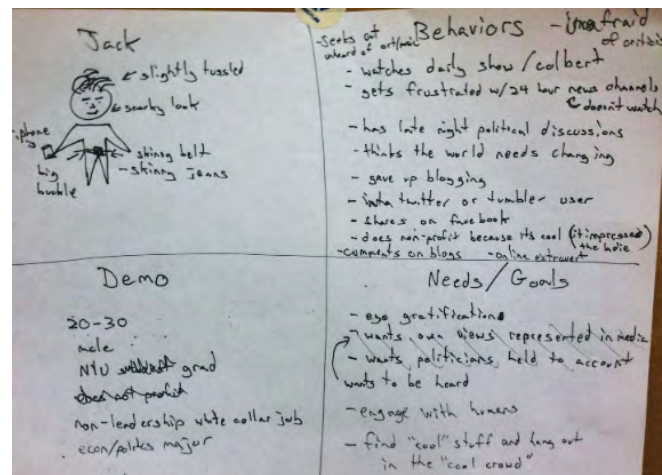 Jack
slightly tussled
snarky look
iphone
skinny belt
big
buckle
skinny jeans
Behaviors
- unafraid
of criticis
- seeks out
unheard of art/music
- watches daily show/colbert
- gets frustrated w/24 hour news channels
doesn't watch
- has late night political discussions
- thinks the world needs changing
- gave up blogging
- twitter or tumbler user
- shares on facebook
- does non-profit because its cool (it impresses)
the ladie
- comments on blogs - online extravert
Demo
20-30
male
NYU grad
does not profit
non-leadership white collar job
econ/polites major
Needs/Goals
- ego gratification
- wants own views represented in media
- wants politicians held to account
wants to be heard
- engage with humans
- find "cool" stuff and hang out
in the "cool crowd"